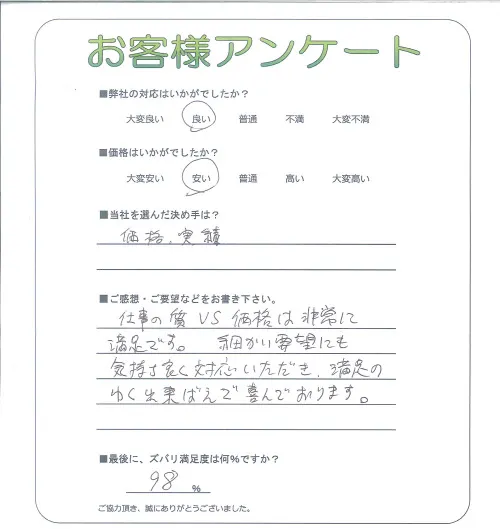 お客様アンケート
■弊社の対応はいかがでしたか？
大変良い 良い 普通 不満 大変不満
■価格はいかがでしたか？
大変安い 安い 普通 高い 大変高い
■当社を選んだ決め手は？
価格、実績
■ご感想・ご要望などをお書き下さい。
仕事の質VS価格は非常に
満足です。 細かい要望にも
気持ち良く対応いただき、満足の
ゆく出来ばえで喜んでおります。
■最後に、ズバリ満足度は何％ですか？
98 %
ご協力頂き、誠にありがとうございました。